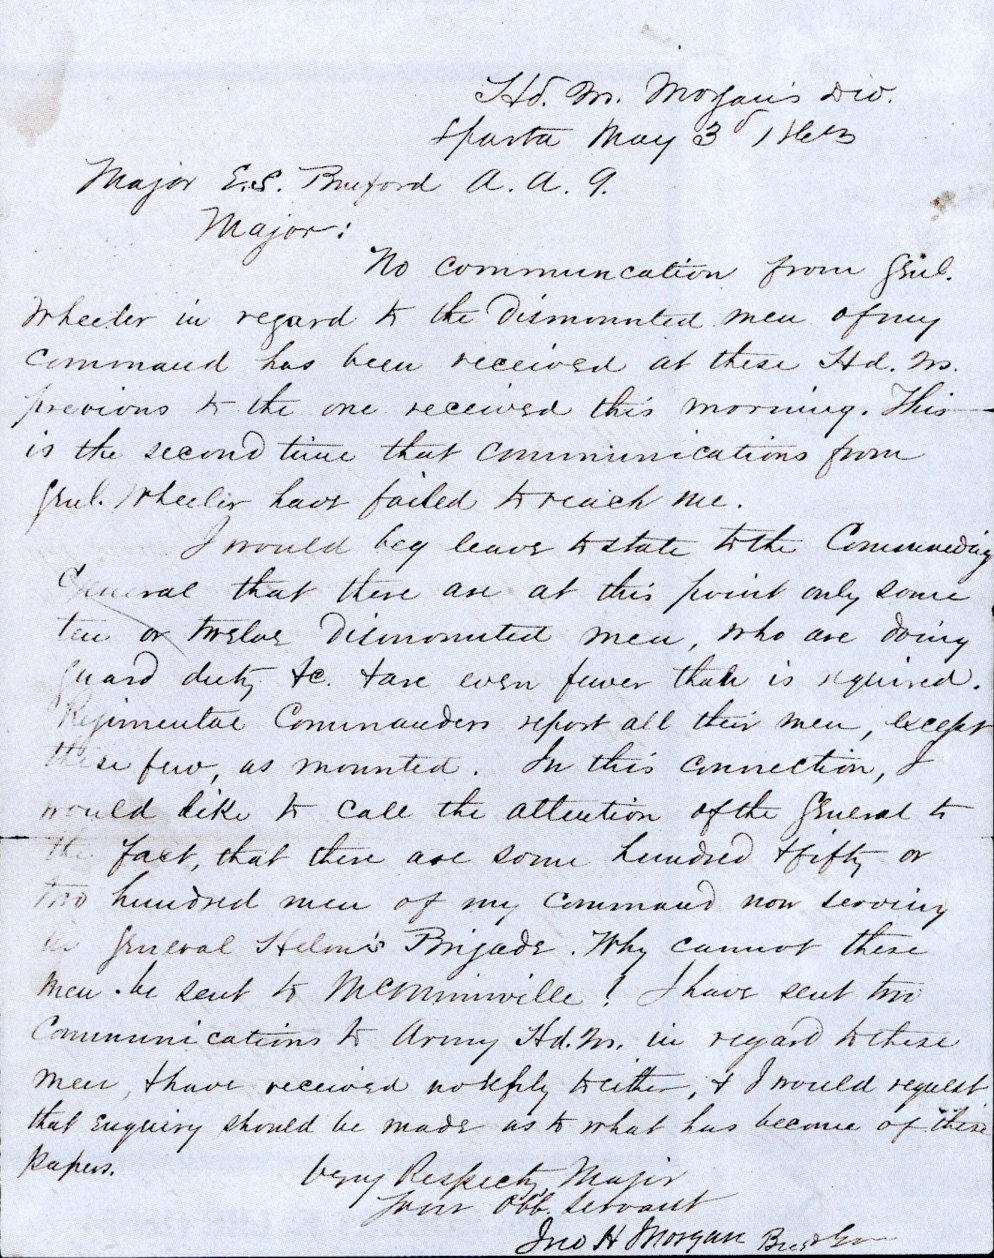 Hd. Qrs. Morgan's Div.
Sparta May 3d 1863
Major E.S. Buford A. A. G.
Major:
No communcation from Genl.
Wheeler in regard to the dismounted men of my
command has been received at these Hd. Qrs.
previous to the one received this morning. This
is the second time that communications from
Genl. Wheeler have failed to reach me.
I would beg leave to state to the Commanding
General that there are at this point only some
ten or twelve dismounted men, who are doing
guard duty &c. & are even fewer than is required.
Regimental Commanders report all their men, except
these few, as mounted. In this connection, I
would like to call the attention of the General to
the fact, that there are some hundred & fifty or
two hundred men of my command now serving
in General Helm's Brigade. Why cannot these
men be sent to McMinnville? I have sent two
communications to Army Hd. Qrs. in regard to these
men, & have received no reply to either, & I would request
that enquiry should be made as to what has become of these
papers.
Very Respecty Major
Your Obt. Servant
Jno H Morgan Brig Gen